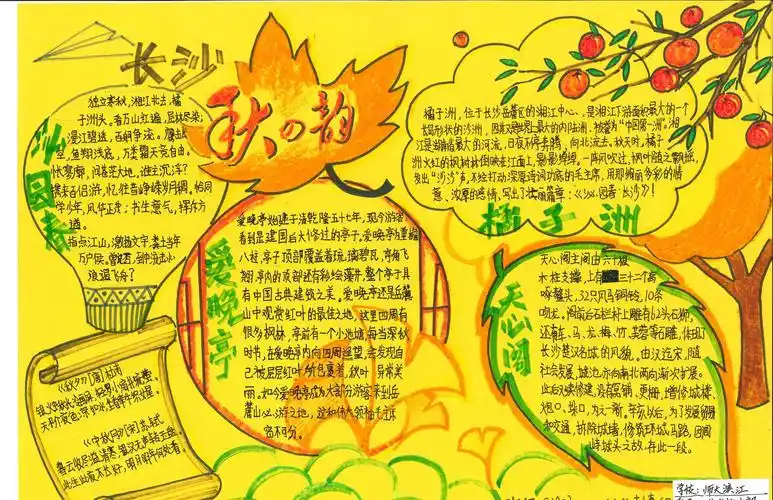 长沙
秋の韵
沁园春
独立寒秋,湘江北去,橘
子洲头,看万山红遍,层林尽染;
漫江碧透,百舸争流。鹰击长
空,鱼翔浅底,万类霜天竞自由。
怅寥廓,问苍茫大地,谁主沉浮?
携来百侣游,忆往昔峥嵘岁月稠,恰同
学少年,风华正茂;书生意气,挥斥方
遒。
指点江山,激扬文字,粪土当年
万户侯。曾记否,到中流击水,
浪遏飞舟?
橘子洲
橘子洲,位于长沙岳麓区的湘江中心、是湘江下游面积最大的一个
长岛形状的沙洲,
最大的内陆洲,被誉为"中国第一洲。湘
江是湖南最大的河流,日夜不停奔腾,向北流去。秋天时,橘子
洲火红的枫树林倒映在江面上,一阵风吹过,枫叶随之飘摇,
发出"沙沙"声,不经打动深厚诗词功底的毛主席,用那绚丽多彩的情
意、浓厚的感情,写出了壮丽篇章:《沁园春·长沙》!
爱晚亭
爱晚亭始建于清乾隆五十七年,现今游客
看到是建国后大修过的亭子。爱晚亭为重檐
八柱,亭子顶部覆盖着琉璃碧瓦,亭角飞
翘,亭内的顶部还有彩绘藻井,整个亭子具
有中国古典建筑之美。爱晚亭还是岳麓
山中观赏红叶的最佳之地,这里四周有
很多枫林,亭前有一个小池塘,每当深秋
时节,在爱晚亭内向四周遥望,会发现自
己被层层红叶所包裹着,秋叶异常美
丽。如今爱晚亭成为大部分游客来到岳
麓山必游之地,这和伟大领袖毛主席
密不可分。
天心阁
天心阁主阁由六十根
木柱支撑,上有三十二个高
啄鳌头,32只风马铜铃,10条
吻龙,阁前后石栏杆上雕有62头石狮,
还有车、马、龙、梅、竹、芙蓉等石雕,体现了
长沙楚汉名城的风貌。由汉迄宋,随
社会发展,城池亦向南北两向渐次扩展。
此后续修建,没有宽铺、更栅,增修城楼、
炮口、垛口,为之一新。辛亥以后,为了发展贸易
和交通,拆除城墙,修筑环城马路,因阁
峙城头之故,存此一段。
《秋夕》[唐]杜牧
银烛秋光冷画屏,轻罗小扇扑流萤。
天阶夜色凉如水,坐看牵牛织女星。
《中秋月》[宋]苏轼
暮云收尽溢清寒,银汉无声转玉盘。
此生此夜不长好,明月明年何处看。
学校:师大滨江